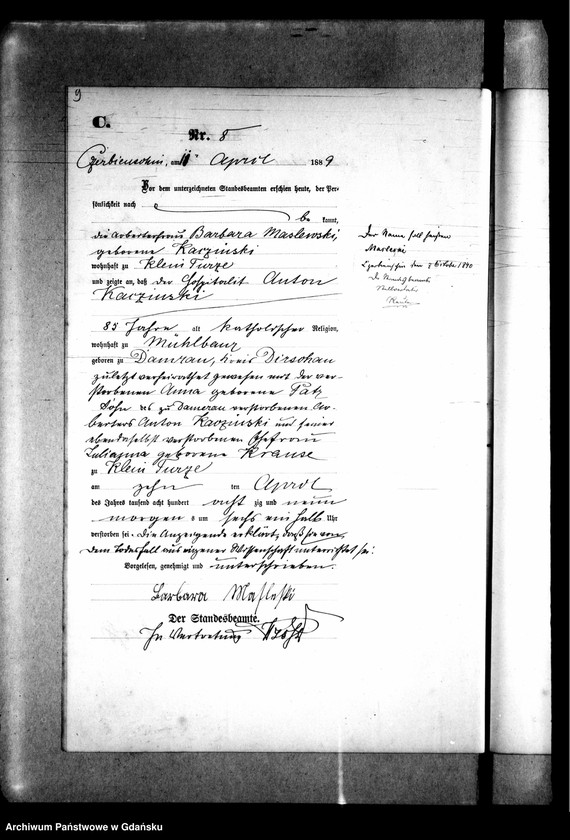 9
C.
Nr. 8
Czerbienschin, am 11. April 1889
Vor dem unterzeichneten Standesbeamten erschien heute, der Per-
sönlichkeit nach
be kannt,
die Arbeiterfrau Barbara Maslewski,
geborene Karzinski
wohnhaft zu Klein Turze
und zeigte an, daß der Hospitalit Anton
Karzinski
85 Jahre alt katholischer Religion,
wohnhaft zu Mühlbanz
geboren zu Damerau, Kreis Dirschau
zuletzt verheirathet gewesen mit der ver-
storbenen Anna geborene Patz
Sohn des zu Damerau verstorbenen Ar-
beiters Anton Karzinski und seiner
ebendaselbst verstorbenen Ehefrau
Julianna geborene Krause
zu Klein Turze
am zehn ten April
des Jahres tausend acht hundert acht zig und neun
morgens um sechs ein halb Uhr
verstorben sei. Die Anzeigende erklärt, daß sie von
dem Todesfall aus eigener Wissenschaft unterrichtet sei.
Vorgelesen, genehmigt und unterschrieben.
Barbara Masleski
Der Standesbeamte.
In Vertretung
Der Name soll heißen
den Oktober 1890
Der Standesbeamte
Archiwum Państwowe w Gdańsku